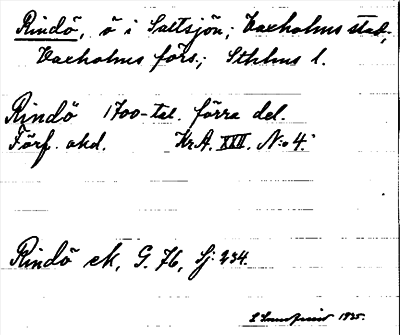 Rindö, ö i Saltsjön; Vaxholms stad,
Vaxholms förs.; Sthlms l.
Rindö 1700-tal. förra del.
Förf. okd. Kr.A. XXII. N:o 4.
Rindö ek, G. 76, Sj: 234.
1935.